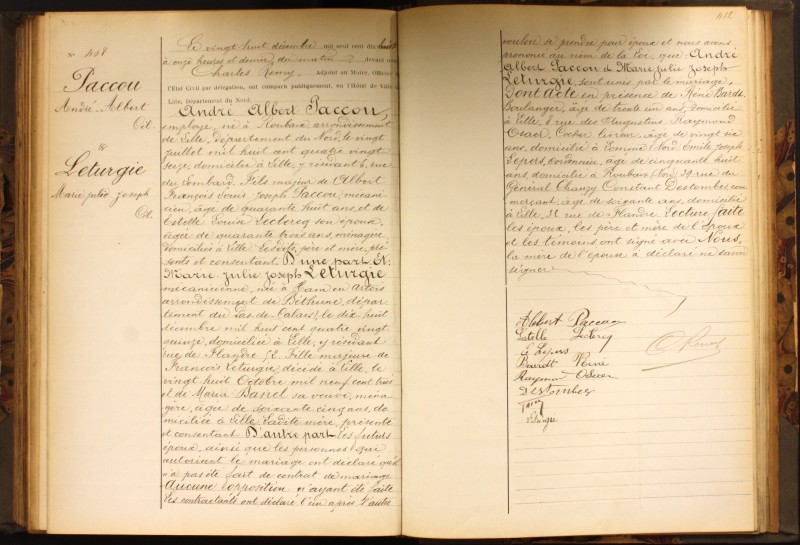 N° 408
Paccou
André Albert
Cél.
&
Leturgie
Marie Julie Joseph
Cél.
Le vingt huit décembre mil neuf cent dix huit
à onze heures et demie du matin devant nous
Charles Remy, Adjoint au Maire, Officier
l'Etat Civil par délégation, ont comparu publiquement, en l'Hôtel de Ville
Lille, Département du Nord,
André Albert Paccou,
employé, né à Roubaix, arrondissement
de Lille, département du Nord, le vingt
juillet mil huit cent quatre vingt
seize, domicilié à Lille, y résidant 6, rue
du Lombard. Fils majeur de Albert
François Louis Joseph Paccou, mécani-
cien, âgé de quarante huit ans, et de
Estelle Louise Leclercq son épouse,
âgée de quarante trois ans, ménagère
domiciliés à Lille. Lesdits père et mère, pré-
sents et consentant D'une part. Et:
Marie Julie Joseph Leturgie
mécanicienne, née à Ham en Artois
arrondissement de Béthune, dépar-
tement du Pas-de-Calais, le dix huit
décembre mil huit cent quatre vingt
quinze, domiciliée à Lille, y résidant
rue de Flandre 52. Fille majeure de
François Leturgie, décédé à Lille, le
vingt huit Octobre mil neuf cent trois
et de Maria Banel sa veuve, ména-
gère, âgée de soixante cinq ans, do-
miciliée à Lille. Ladite mère, présente
et consentant D'autre part. Les futurs
époux, ainsi que les personnes qui
autorisent le mariage ont déclaré qu'il
n'a pas été fait de contrat de mariage
Aucune opposition n'ayant été faite
Les contractants ont déclaré l'un après l'autre
412
vouloir se prendre pour époux et nous avons
prononcé au nom de la Loi, que André
Albert Paccou & Marie Julie Joseph
Leturgie, sont unis par le mariage,
Dont acte en présence de René Barde
Boulanger, âgé de trente un ans, domicilié
à Lille, 8 rue des Augustins. Raymond
Osaer, Cocher livreur, âgé de vingt six
ans, domicilié à Emmerin (Nord) Emile Joseph
Lepers, Cordonnier, âgé de cinquante huit
ans, domicilié à Roubaix (Nord) 39 rue du
Général Chanzy. Constant Destombes, com-
merçant, âgé de soixante ans, domicilié
à Lille, 51 rue de Flandre. Lecture faite
les époux, les père et mère de l'époux
et les témoins ont signé avec Nous,
la mère de l'épouse a déclaré ne savoir
signer
Albert Paccou
Estelle Leclercq
E Lepers
René
Raymond Osaer
Destombes